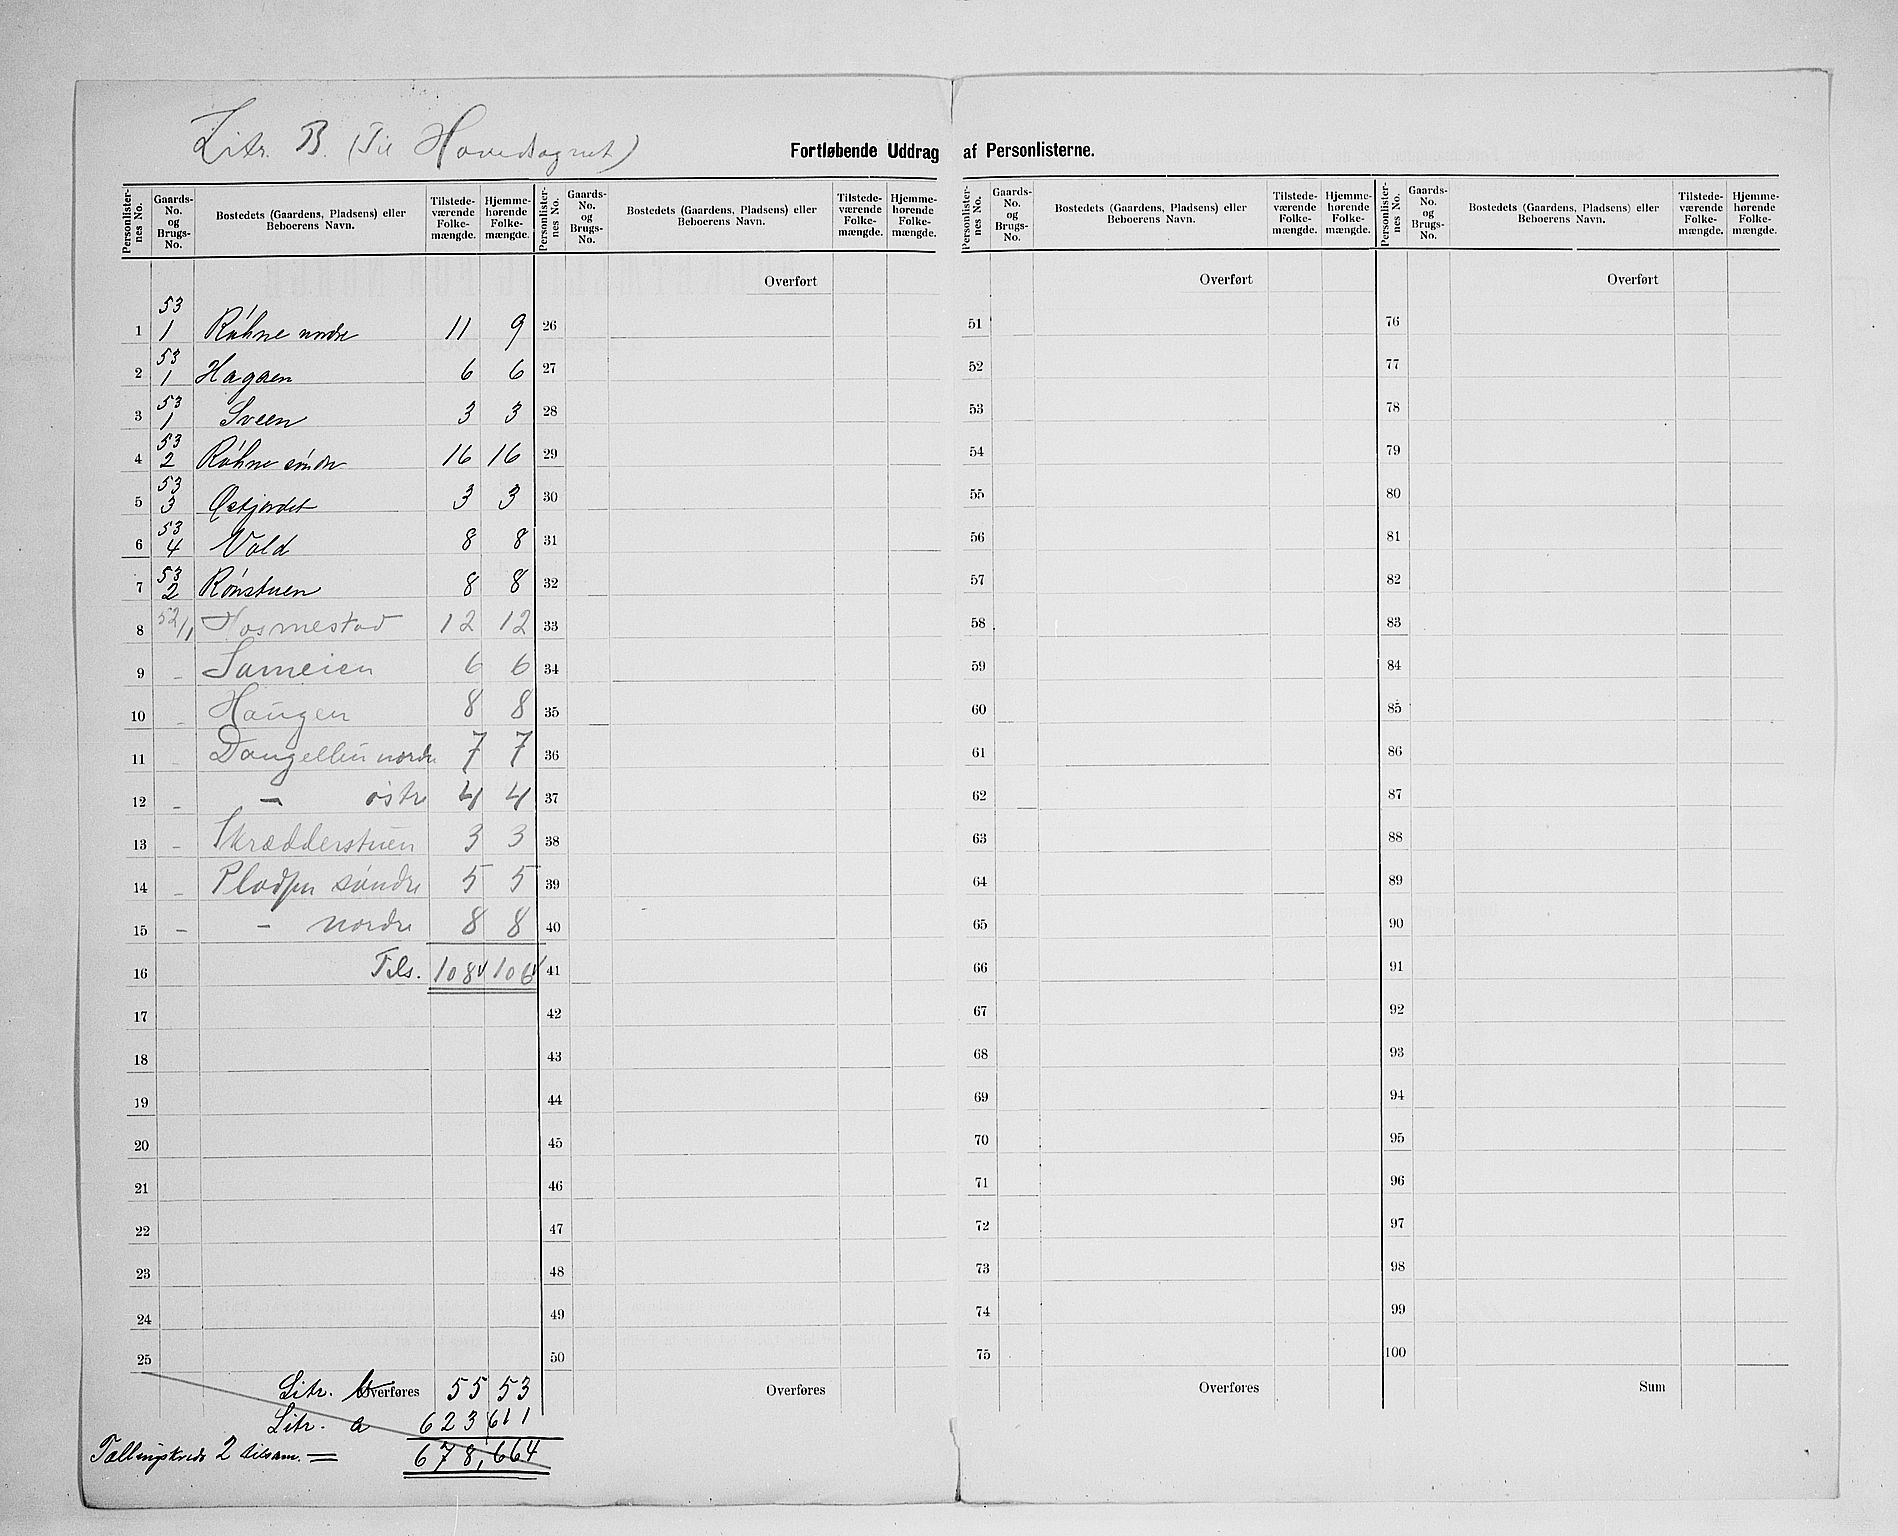 Litr. B. (Til Hovedsognet)
Fortløbende Uddrag af Personlisterne.
Personlister-nes No. | Gaards-No. og Brugs-No. | Bostedets (Gaardens, Pladsens) eller Beboerens Navn. | Tilstede-værende Folke-mængde. | Hjemme-hørende Folke-mængde.
Personlister-nes No. | Gaards-No. og Brugs-No. | Bostedets (Gaardens, Pladsens) eller Beboerens Navn. | Tilstede-værende Folke-mængde. | Hjemme-hørende Folke-mængde.
Personlister-nes No. | Gaards-No. og Brugs-No. | Bostedets (Gaardens, Pladsens) eller Beboerens Navn. | Tilstede-værende Folke-mængde. | Hjemme-hørende Folke-mængde.
Personlister-nes No. | Gaards-No. og Brugs-No. | Bostedets (Gaardens, Pladsens) eller Beboerens Navn. | Tilstede-værende Folke-mængde. | Hjemme-hørende Folke-mængde.
Overført Overført Overført
1 53 1 Røhne nordre 11 9 26 51 76
2 53 1 Hagaen 6 6 27 52 77
3 53 1 Sveen 3 3 28 53 78
4 53 2 Røhne søndre 16 16 29 54 79
5 53 3 Østjordet 3 3 30 55 80
6 53 4 Vold 8 8 31 56 81
7 53 2 Rønstuen 8 8 32 57 82
8 52/1 Hosmestad 12 12 33 58 83
9 - Sameien 6 6 34 59 84
10 - Haugen 8 8 35 60 85
11 - nordre 7 7 36 61 86
12 - - østre 4 4 37 62 87
13 - Skrædderstuen 3 3 38 63 88
14 - Pladsen søndre 5 5 39 64 89
15 - - nordre 8 8 40 65 90
16 Tils. 108 106 41 66 91
17 42 67 92
18 43 68 93
19 44 69 94
20 45 70 95
21 46 71 96
22 47 72 97
23 48 73 98
24 49 74 99
25 50 75 100
Litr. b Overføres 55 53 Overføres Overføres Sum
Litr. a 623 611
Tællingskreds 2 tilsam. = 678, 664